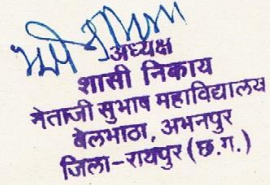 अध्यक्ष
शासी निकाय
नेताजी सुभाष महाविद्यालय
बेलभाठा, अभनपुर
जिला-रायपुर (छ.ग.)